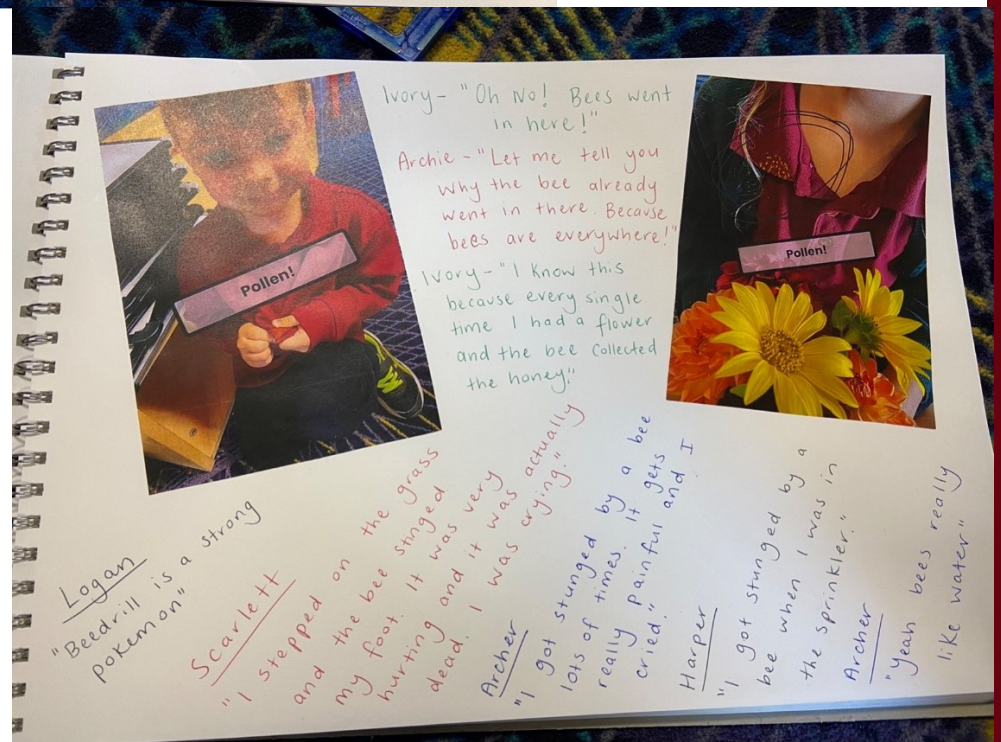 Pollen!
Ivory - "Oh No! Bees went
in here!"
Archie - "Let me tell you
why the bee already
went in there. Because
bees are everywhere!"
Ivory - "I Know this
because every single
time I had a flower
and the bee collected
the honey."
Pollen!
Logan
"Beedrill is a strong
pokemon"
Scarlett
"I stepped on the grass
and the bee stinged
my foot. It was very
hurting and it was actually
dead. I was crying."
Archer
"I got stunged by a bee
lots of times. It gets
really painful and I
cried."
Harper
"I got stunged by a
bee when I was in
the sprinkler."
Archer
"Yeah bees really
like water"